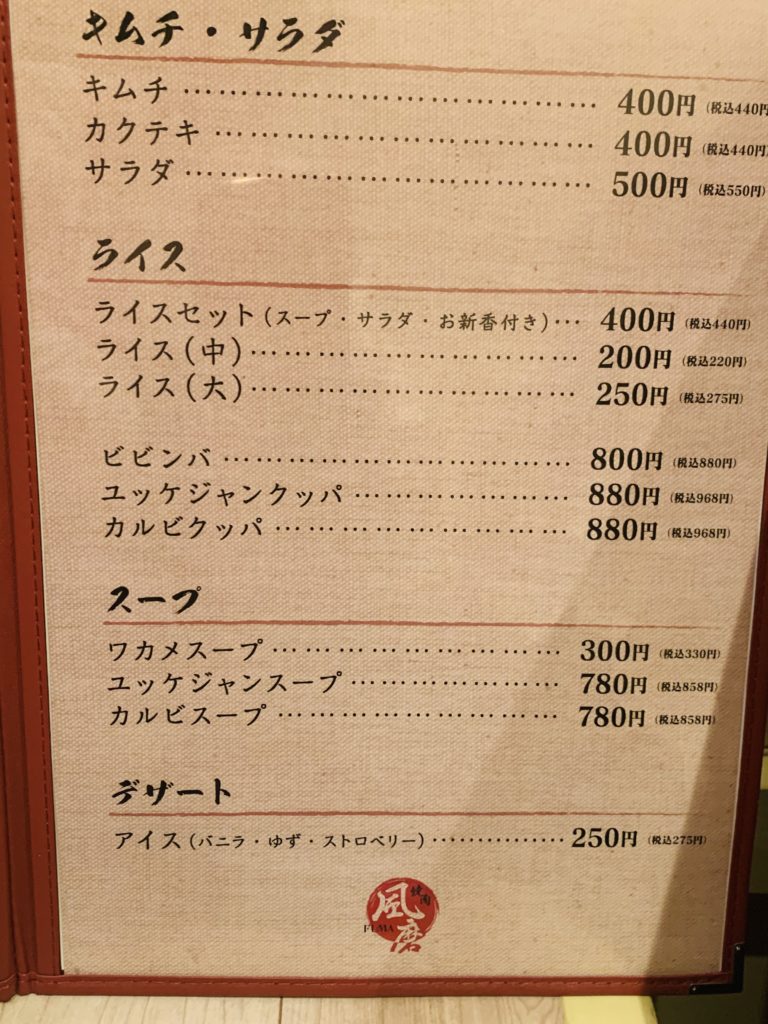 キムチ・サラダ
キムチ ………………………………… 400円 (税込440円
カクテキ ……………………………… 400円 (税込440円
サラダ ………………………………… 500円 (税込550円)
ライス
ライスセット(スープ・サラダ・お新香付き)… 400円 (税込440円)
ライス(中)…………………………… 200円 (税込220円)
ライス(大)…………………………… 250円 (税込275円)
ビビンバ ……………………………… 800円 (税込880円)
ユッケジャンクッパ ………………… 880円 (税込968円)
カルビクッパ ………………………… 880円 (税込968円)
スープ
ワカメスープ ………………………… 300円 (税込330円)
ユッケジャンスープ ………………… 780円 (税込858円)
カルビスープ ………………………… 780円 (税込858円)
デザート
アイス(バニラ・ゆず・ストロベリー)…………… 250円 (税込275円)
焼肉
風磨
FUMA